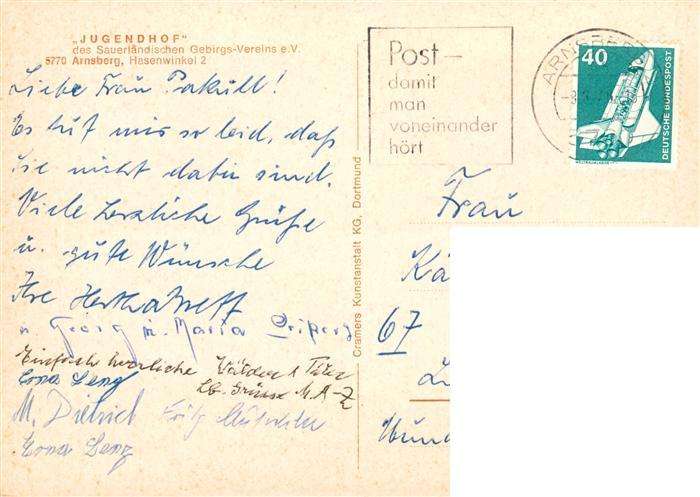 „JUGENDHOF"
des Sauerländischen Gebirgs-Vereins e.V.
5770 Arnsberg, Hasenwinkel 2
Liebe Frau Pakull!
Es tut mir so leid, daß
Sie nicht dabei sind.
Viele herzliche Grüße
u. gute Wünsche
Ihre Hertha
u Georg u. Maria
Einfach herrliche Wälder
Erna Lenz
Lb. Grüsse M. A-Z
M. Dietrich Fritz
Erna Lenz
Cramers Kunstanstalt KG, Dortmund
Post –
damit
man
voneinander
hört
ARNSBERG
40
DEUTSCHE BUNDESPOST
Frau
Kä
67